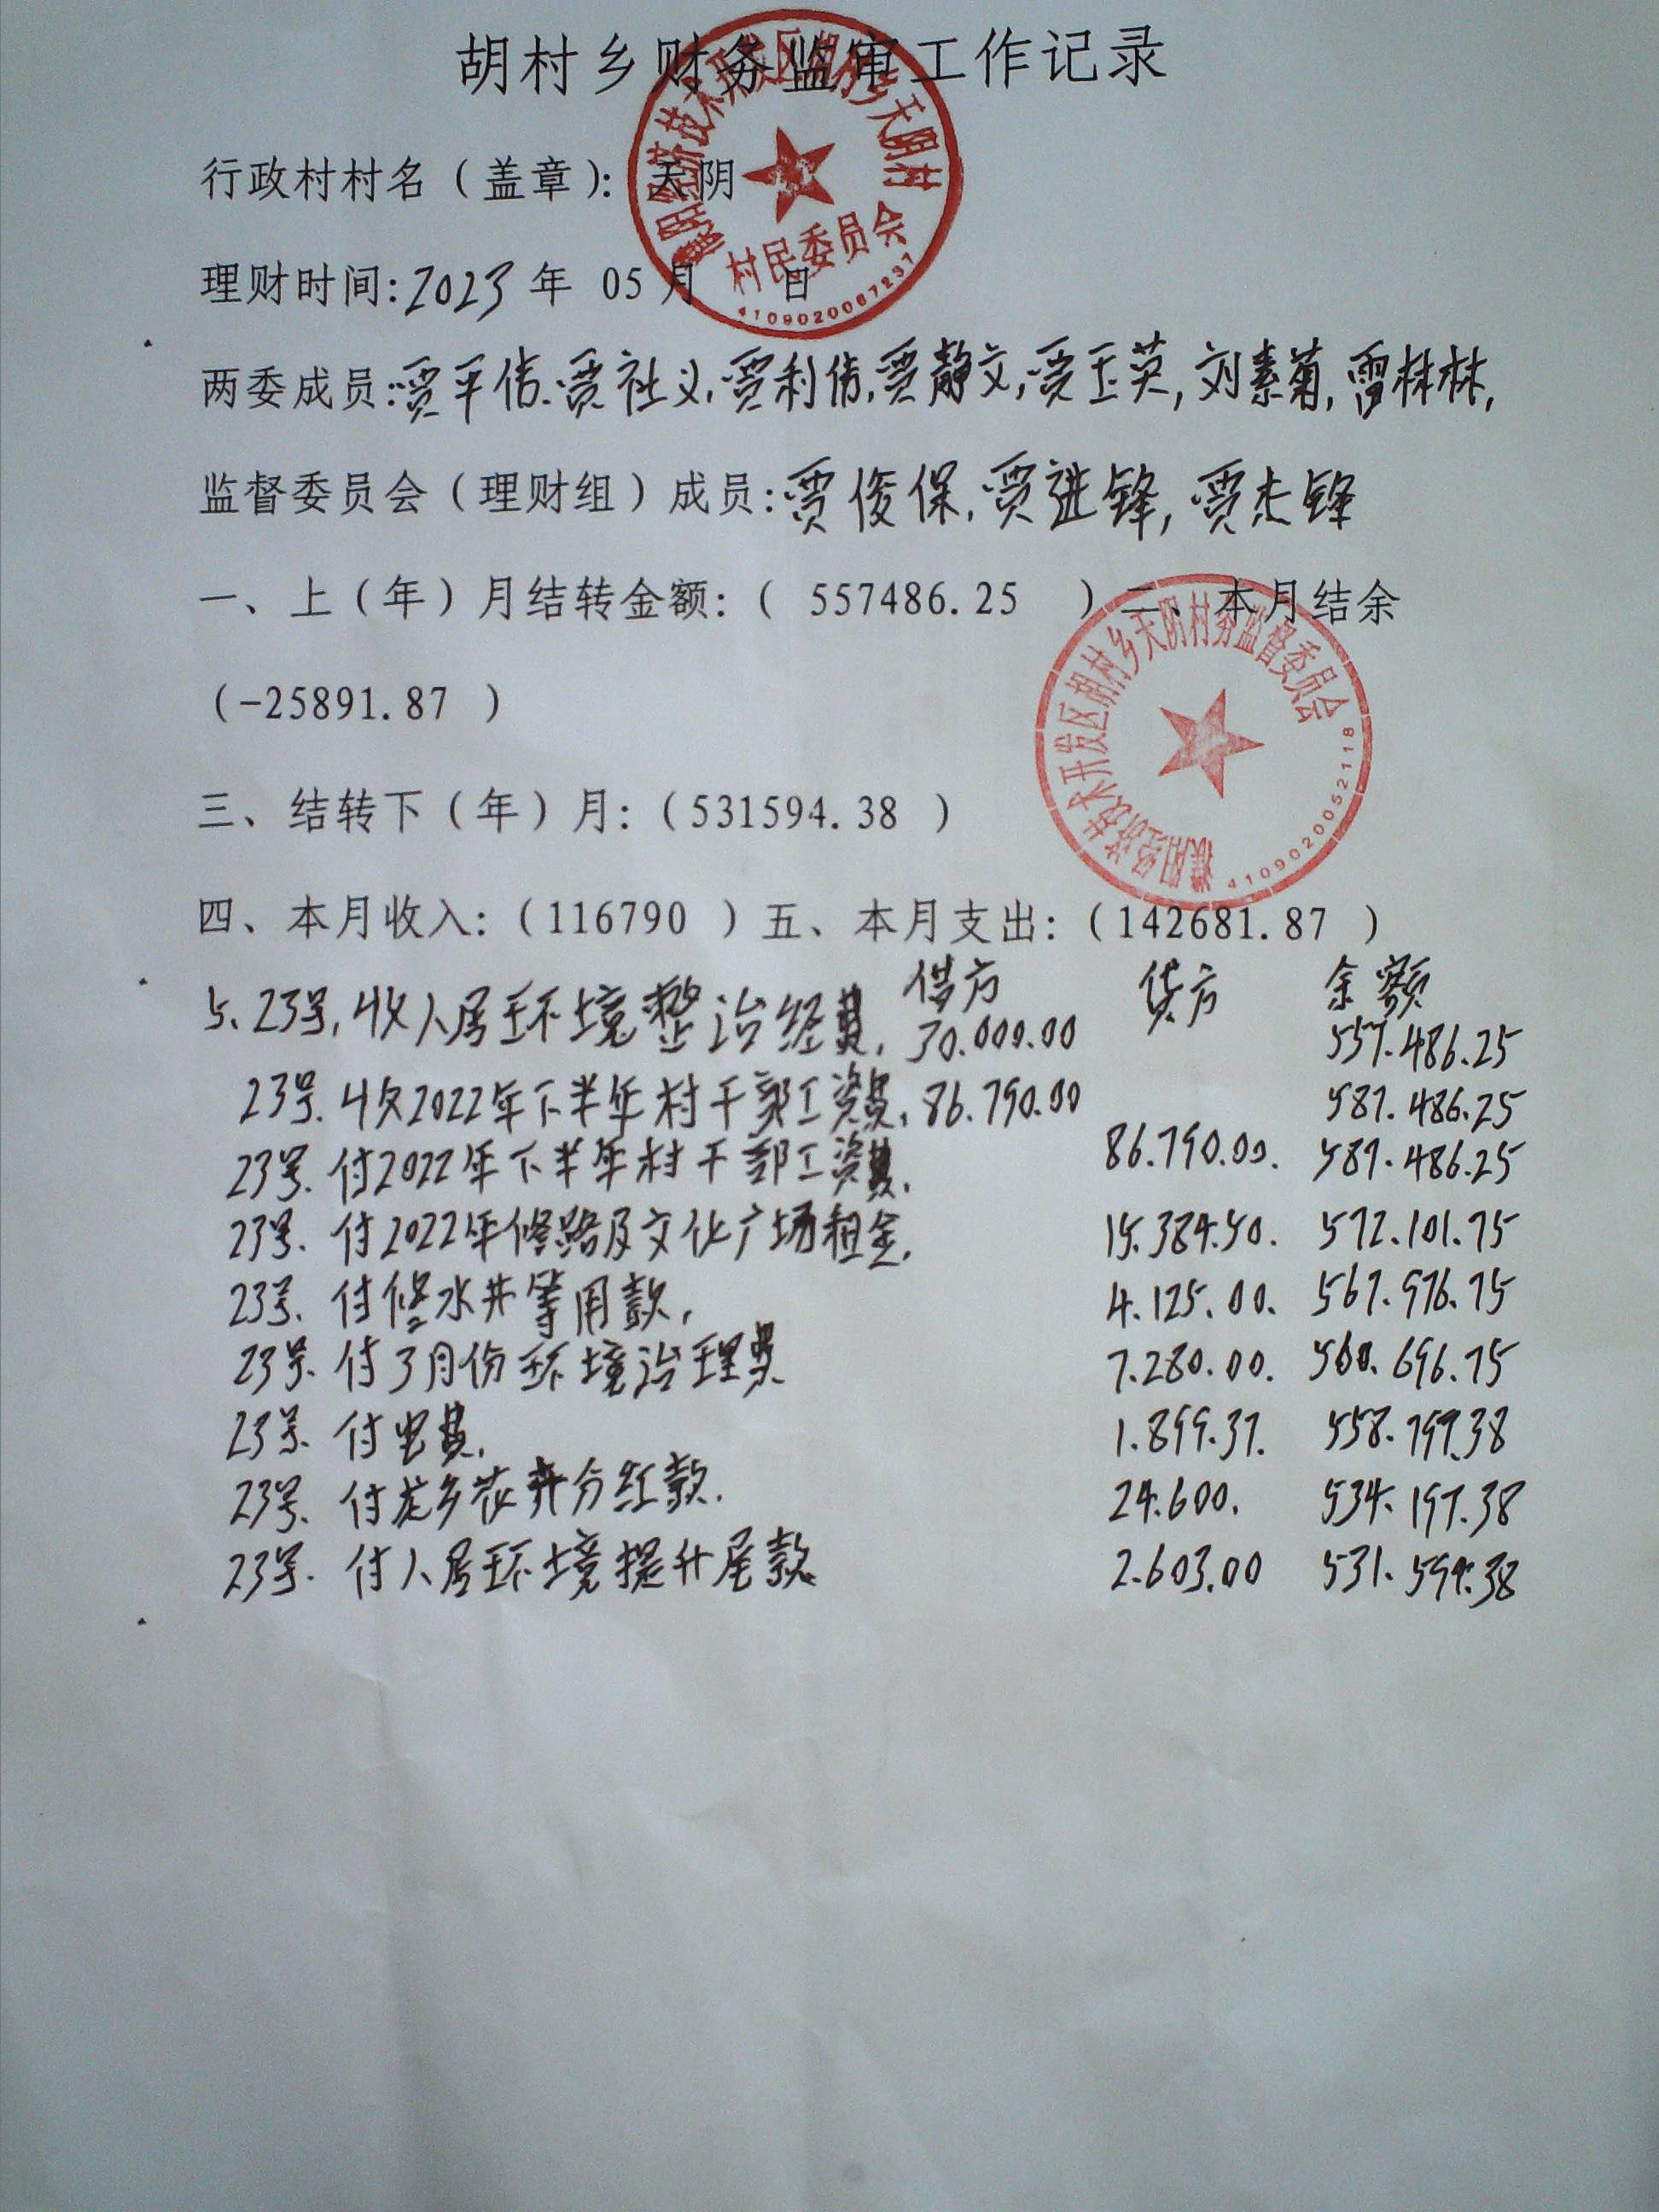 胡村乡财务监审工作记录
行政村村名（盖章）：天阴
濮阳经济技术开发区胡村乡天阴村
村民委员会
4109020067237
理财时间:2023年 05月 日
两委成员:贾平信.贾社义,贾利信,贾静文,贾玉英,刘素菊,雷林林,
监督委员会（理财组）成员:贾俊保,贾进锋,贾杰锋
一、上（年）月结转金额：（ 557486.25 ）二、本月结余
（-25891.87 ）
濮阳经济技术开发区胡村乡天阴村务监督委员会
4109020052118
三、结转下（年）月：（531594.38 ）
四、本月收入：（116790 ）五、本月支出：（142681.87 ）
借方 贷方 余额
557.486.25
5、23号,收人居环境整治经费, 30.000.00
587.486.25
23号.收2022年下半年村干部工资费, 86.790.00
23号.付2022年下半年村干部工资费, 86.790.00. 587.486.25
23号.付2022年修路及文化广场租金, 15.384.50. 572.101.75
23号.付修水井等用款, 4.125.00. 567.976.75
23号.付3月份环境治理费 7.280.00. 560.696.75
23号.付电费, 1.899.37. 558.797.38
23号.付龙乡花卉分红款. 24.600. 534.197.38
23号.付人居环境提升尾款 2.603.00 531.594.38